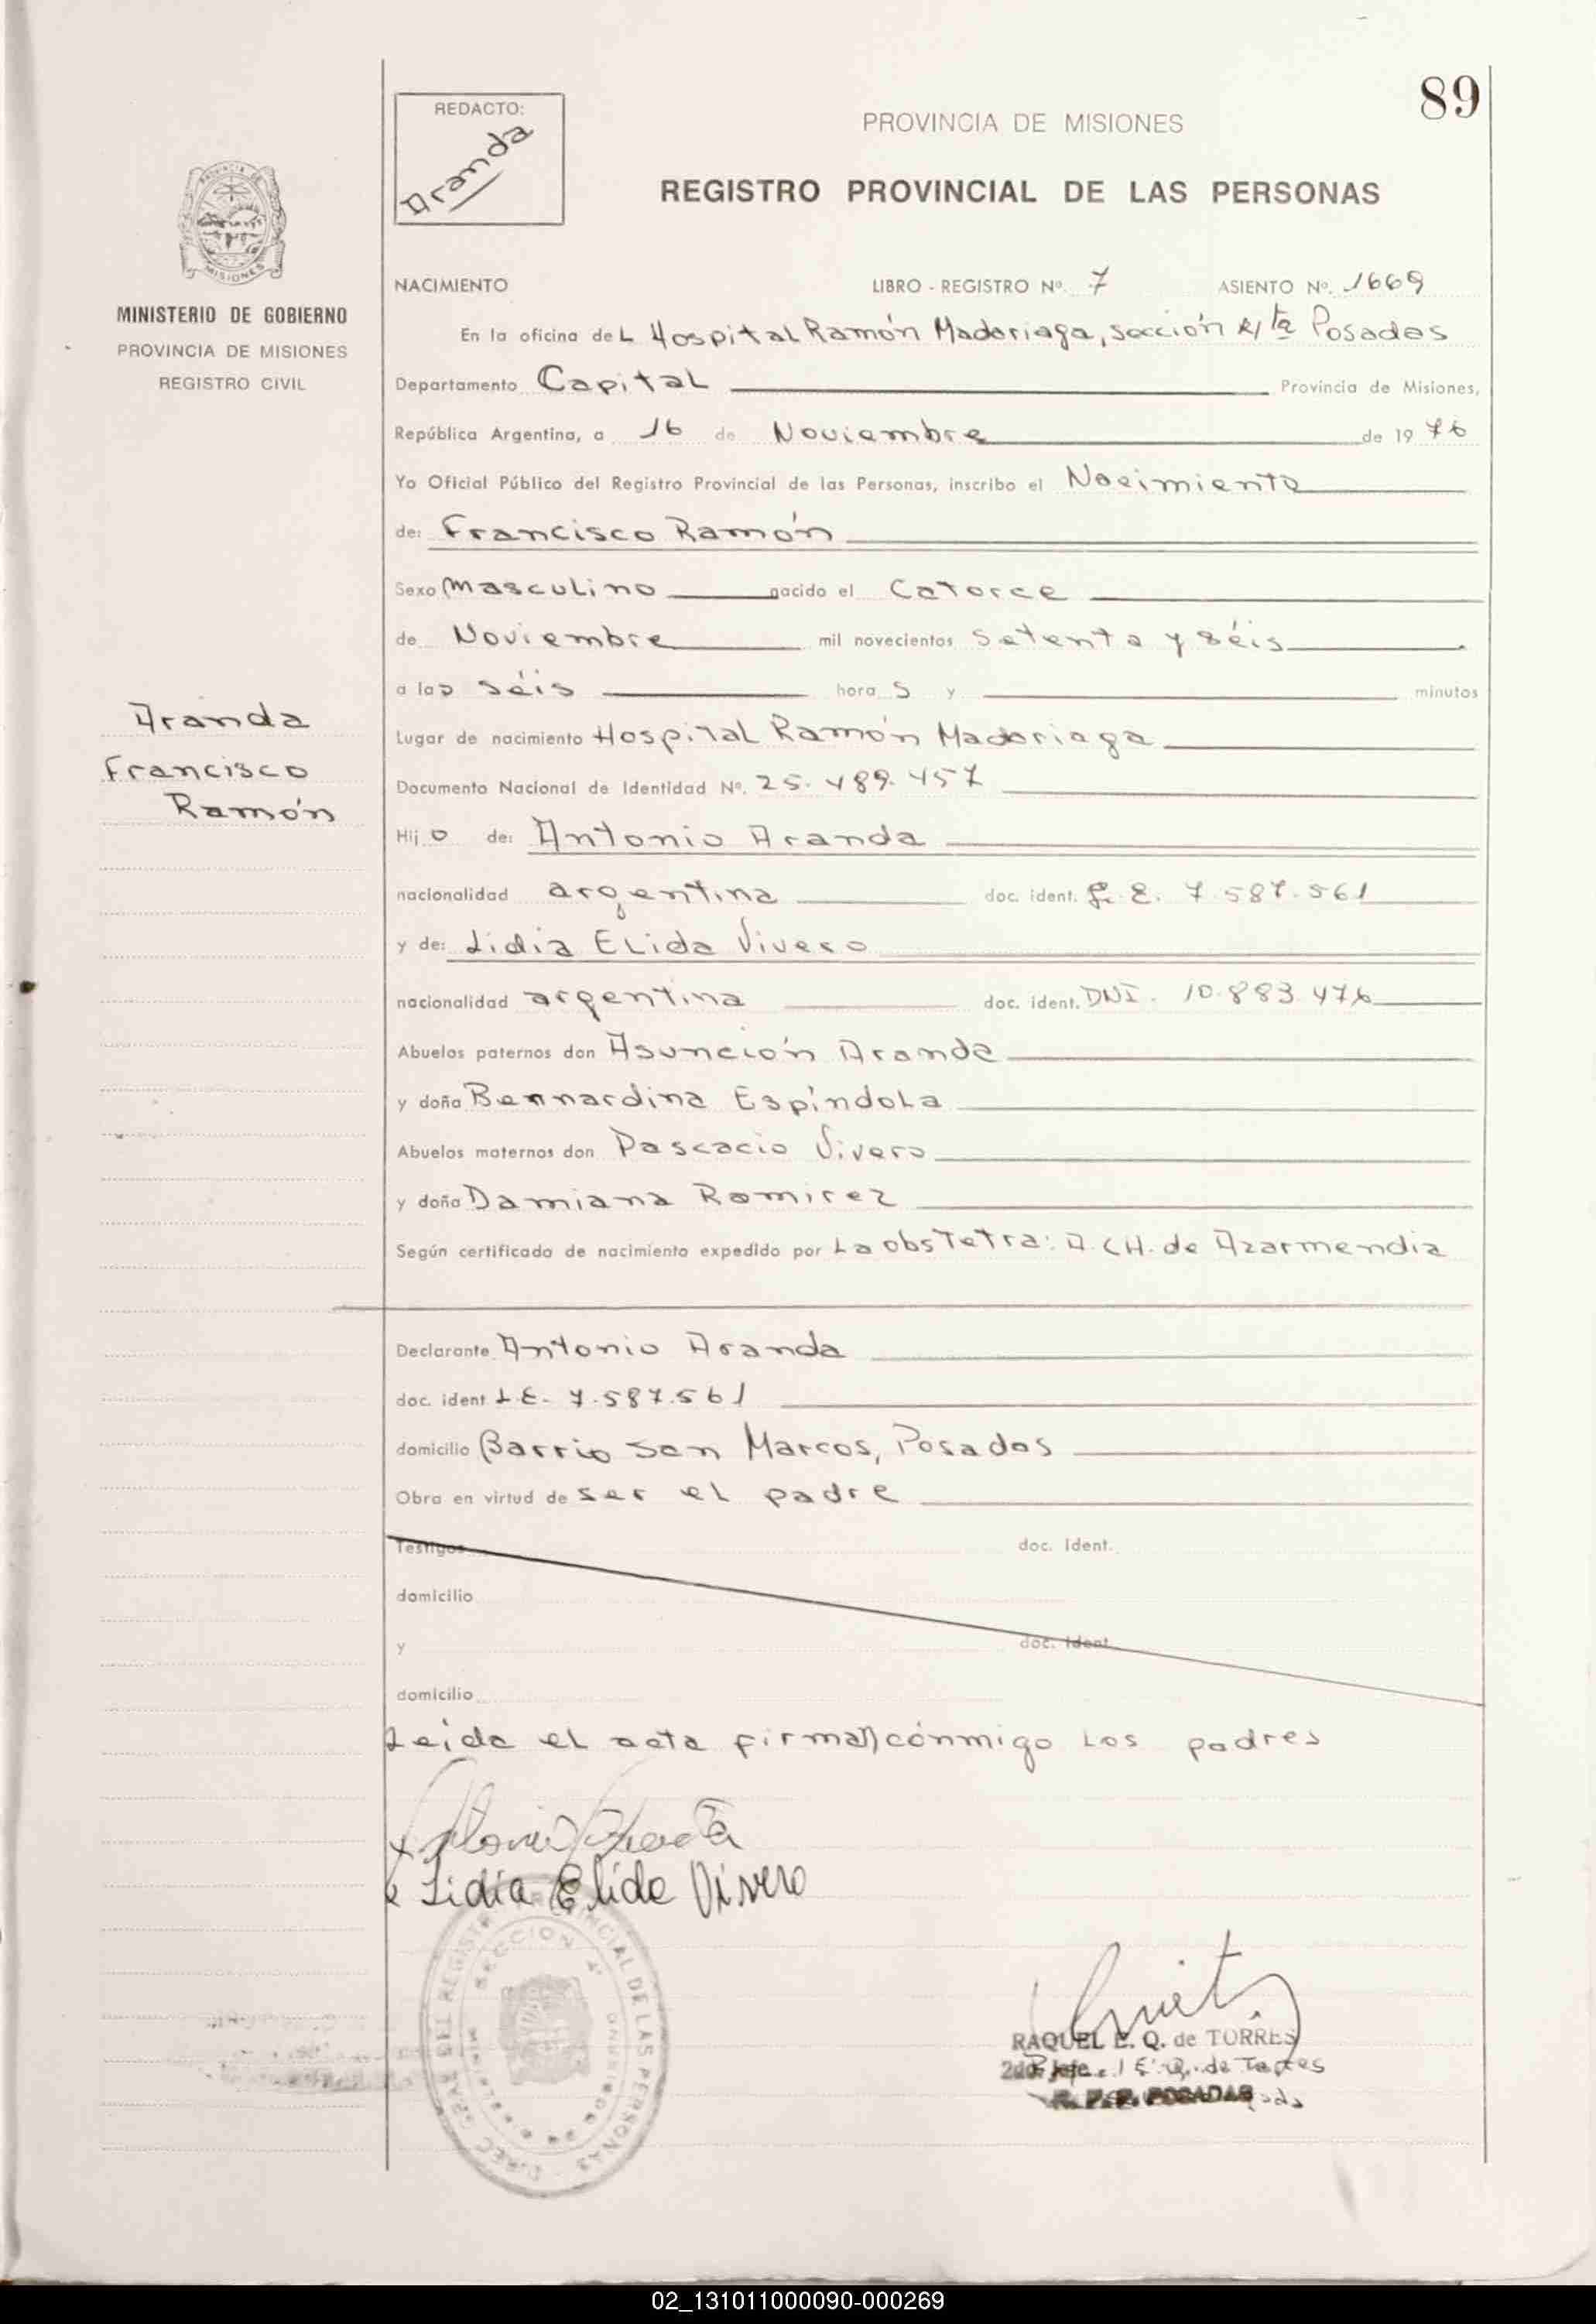 89
REDACTO:
Aranda
PROVINCIA DE MISIONES
REGISTRO PROVINCIAL DE LAS PERSONAS
MISIONES
MINISTERIO DE GOBIERNO
PROVINCIA DE MISIONES
REGISTRO CIVIL
NACIMIENTO LIBRO - REGISTRO Nº. 7 ASIENTO Nº. 1669
En la oficina deL Hospital Ramón Madariaga, sección 4/ta Posadas
Departamento Capital Provincia de Misiones,
República Argentina, a 16 de Noviembre de 19 76
Yo Oficial Público del Registro Provincial de las Personas, inscribo el Nacimiento
de: Francisco Ramón
Sexo masculino nacido el Catorce
de Noviembre mil novecientos setenta y séis
a las séis hora s y minutos
Lugar de nacimiento Hospital Ramón Madariaga
Documento Nacional de Identidad Nº. 25.489.457
Hij o de: Antonio Aranda
nacionalidad argentina doc. ident. L.E. 7.587.561
y de: Lidia Elida Vivero
nacionalidad argentina doc. ident. DNI. 10.883.476
Abuelos paternos don Asunción Aranda
y doña Bennardina Espíndola
Abuelos maternos don Pascacio Vivero
y doña Damiana Romirez
Según certificado de nacimiento expedido por La obstetra: A. CH. de Azarmendia
Aranda
Francisco
Ramón
Declarante Antonio Aranda
doc. ident L.E. 7.587.561
domicilio Barrio San Marcos, Posadas
Obra en virtud de ser el padre
Testigos doc. Ident.
domicilio
y doc. Ident
domicilio
Leída el acta firman conmigo los padres
Lidia Elida Vivero
REGISTRO PROVINCIAL DE LAS PERSONAS
SECCION 4ª
RAQUEL E. Q. de TORRES
2do Jefe
R. P. P. POSADAS
02_131011000090-000269